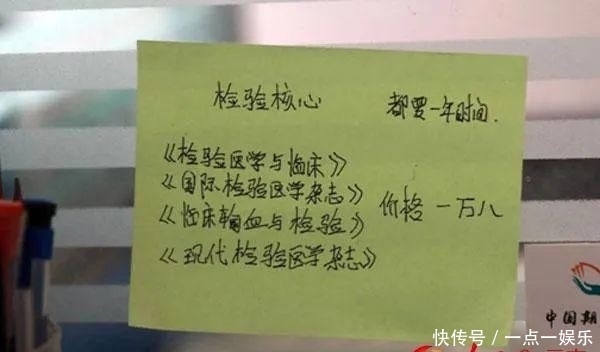 检验核心 都要一年时间.
《检验医学与临床》
《国际检验医学杂志》
《临床输血与检验》 价格 一万八
《现代检验医学杂志》
中国期
快传号／一点一娱乐